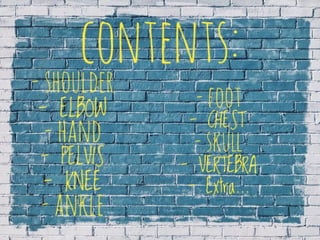 CONTENTS:
- SHOULDER
- ELBOW
- HAND
- PELVIS
- KNEE
- ANKLE
- FOOT
- CHEST
- SKULL
- VERTEBRA
- Extra...